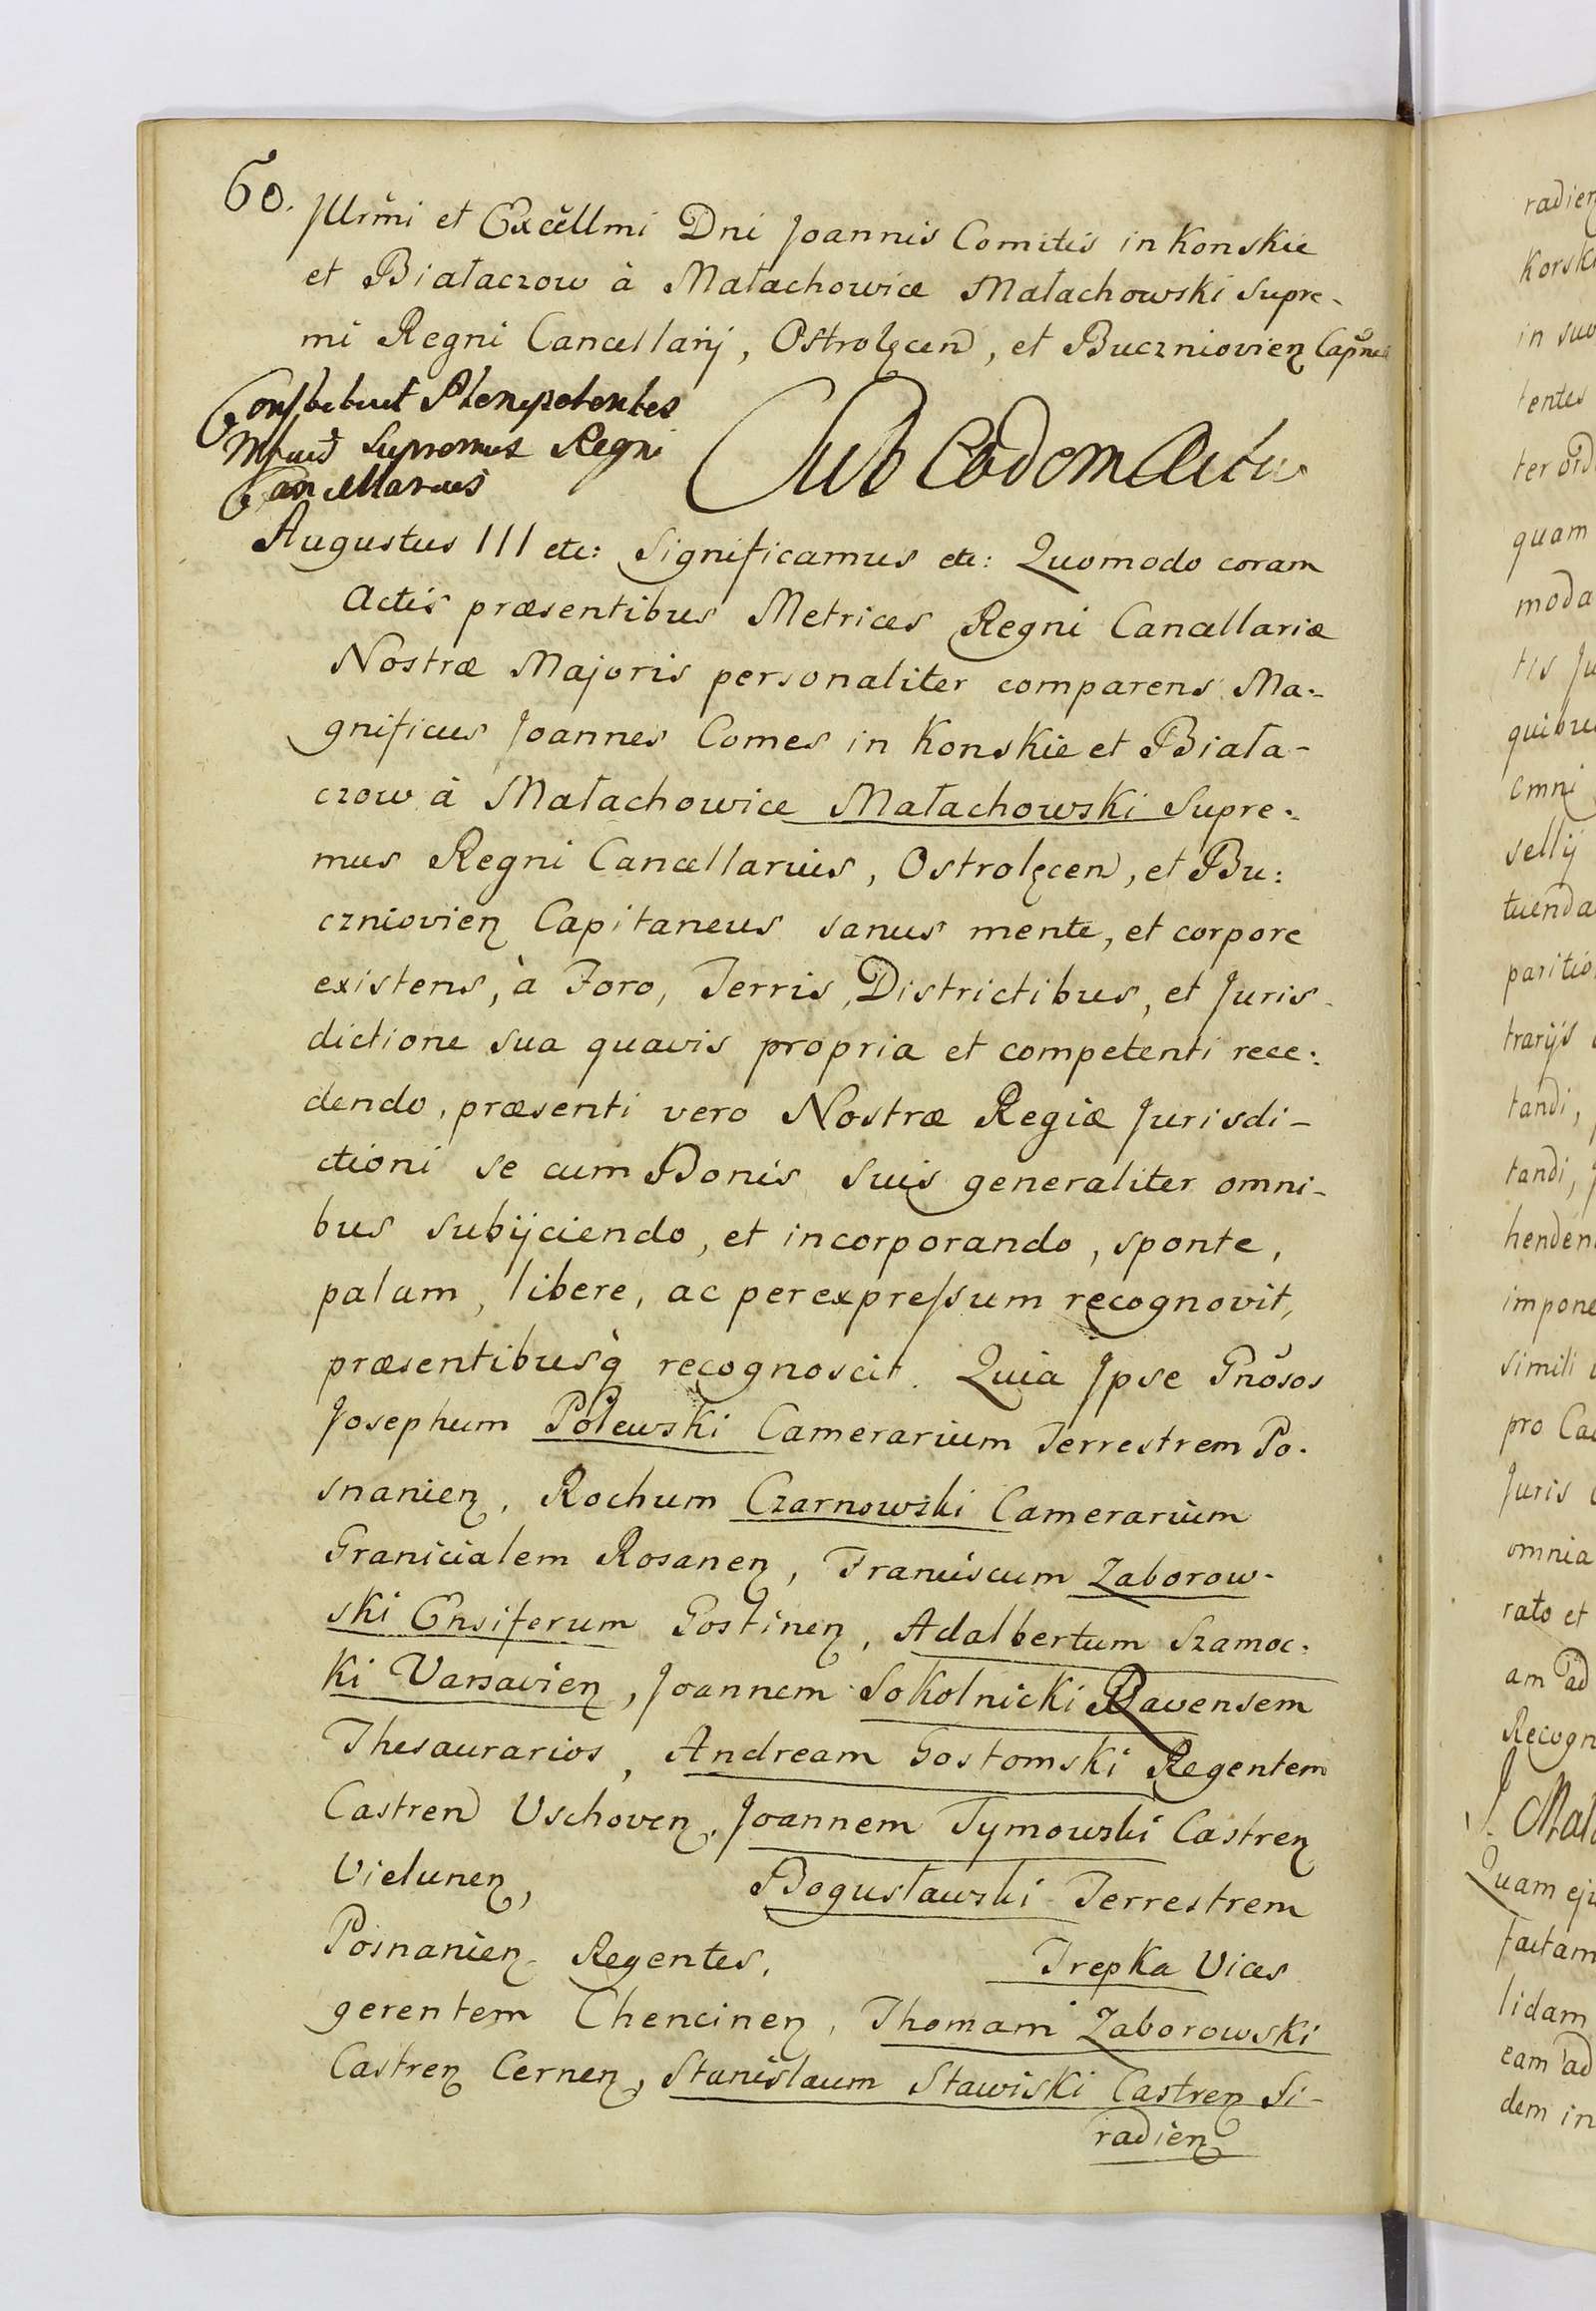 60.
Jllrmi et Excellmi Dni Joannis Comitis in Konskie
et Białaczow à Małachowice Małachowski Supre-
mi Regni Cancellarij, Ostrolęcen, et Buczniovien Capnei
Constituit Plenipotentes
Mfcus Supremus Regni
Cancellarius
Sub Eodem Actu
Augustus III etc: Significamus etc: Quomodo coram
Actis præsentibus Metrices Regni Cancellariæ
Nostræ Majoris personaliter comparens Ma-
gnificus Joannes Comes in Konskie et Biała-
czow à Małachowice Małachowski Supre-
mus Regni Cancellarius, Ostrolęcen, et Bu:
czniovien Capitaneus sanus mente, et corpore
existens, à Foro, Terris, Districtibus, et Juris-
dictione sua quavis propria et competenti rece:
dendo, præsenti vero Nostræ Regiæ Jurisdi-
ctioni se cum Bonis suis generaliter omni-
bus subijciendo, et incorporando, sponte,
palam, libere, ac per expressum recognovit,
præsentibusq recognoscit. Quia Jpse Gnosos
Josephum Polewski Camerarium Terrestrem Po-
snanien, Rochum Czarnowski Camerarium
Granicialem Rosanen, Franciscum Zaborow-
ski Ensiferum Gostinen, Adalbertum Szamoc:
ki Varsavien, Joannem Sokolnicki Ravensem
Thesaurarios, Andream Gostomski Regentem
Castren Uschoven, Joannem Tymowski Castren
Vielunen, Bogusławski Terrestrem
Posnanien Regentes, Trepka Vices
gerentem Chencinen, Thomam Zaborowski
Castren Cernen, Stanislaum Stawiski Castren Si-
radien
radien
Korski
in suo
tentes
ter ord
quam
moda
tis Ju
quibus
omni
sellij
tuenda
paritio
trarijs
tandi,
tandi,
henden
impone
simili
pro Ca
Juris
omnia
rato et
am ad
Recogn
J. Mała
Quam eju
factam
lidam
eam ad
dem in